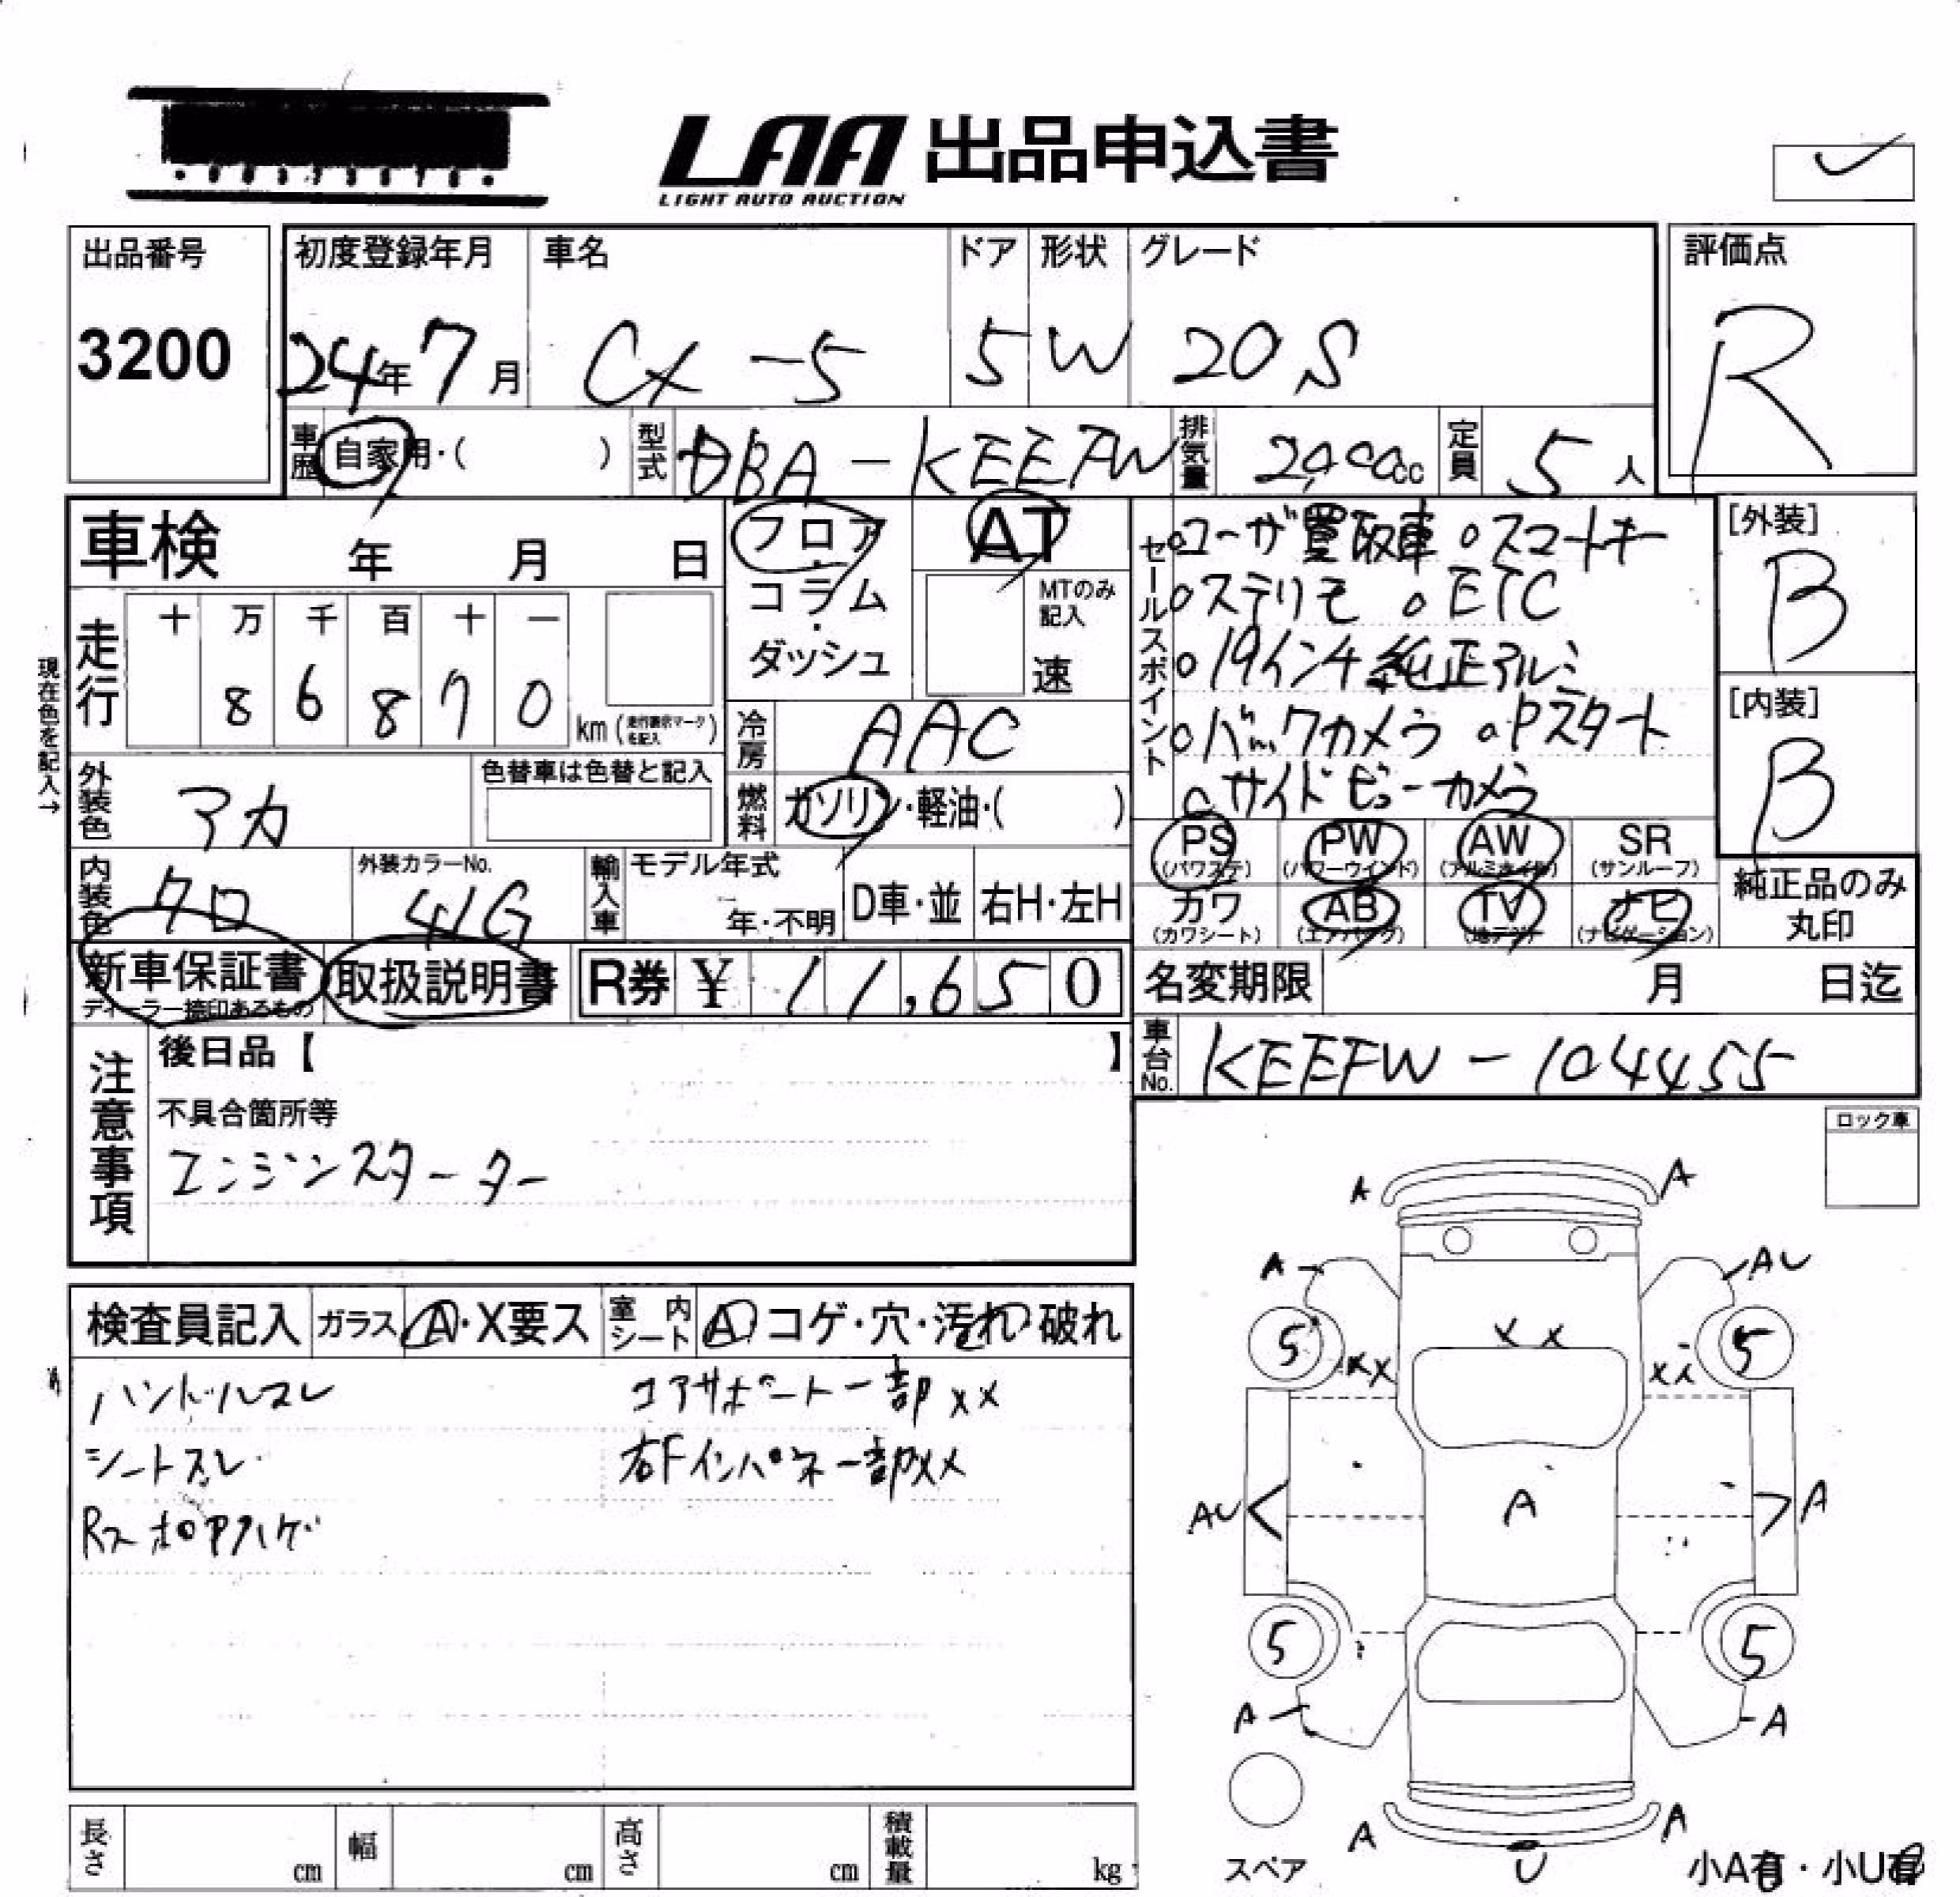 LAA 出品申込書
LIGHT AUTO AUCTION
出品番号 初度登録年月 車名 ドア 形状 グレード 評価点
3200 24年 7月 CX-5 5 W 20S R
車歴 自家用・( ) 型式 DBA-KEEFW 排気量 2,000cc 定員 5人
車検 年 月 日 フロア・コラム・ダッシュ AT
MTのみ記入 速
セールスポイント
○ユーザ買取車 ○スマートキー
○ステリモ ○ETC
○19インチ純正アルミ
○バックカメラ ○Pスタート
○サイドビューカメラ
[外装]
B
[内装]
B
現在色を記入→
走行 十 万 千 百 十 一
8 6 8 7 0 km (走行表示マークを記入)
冷房 AAC
外装色 アカ 色替車は色替と記入
燃料 ガソリン・軽油・( )
PS (パワステ) PW (パワーウインド) AW (アルミホイル) SR (サンルーフ)
カワ (カワシート) AB (エアバッグ) TV (地デジ) ナビ (ナビゲーション)
純正品のみ丸印
内装色 クロ 外装カラーNo. 41G 輸入車 モデル年式 年・不明 D車・並 右H・左H
新車保証書 ディーラー捺印あるもの 取扱説明書 R券 ¥ 11,650
名変期限 月 日迄
車台No. KEEFW-104455
注意事項
後日品【 】
不具合箇所等
エンジンスターター
ロック車
検査員記入 ガラス A・X要ス 室内シート A コゲ・穴・汚れ・破れ
ハンドルスレ コアサポート一部XX
シートスレ 右Fインパネ一部XX
RスポロアハゲA A
A AU
5 X X 5
XX XX
AU A A
5 5
A A
A A
U
スペア 小A有・小U有
長さ cm 幅 cm 高さ cm 積載量 kg